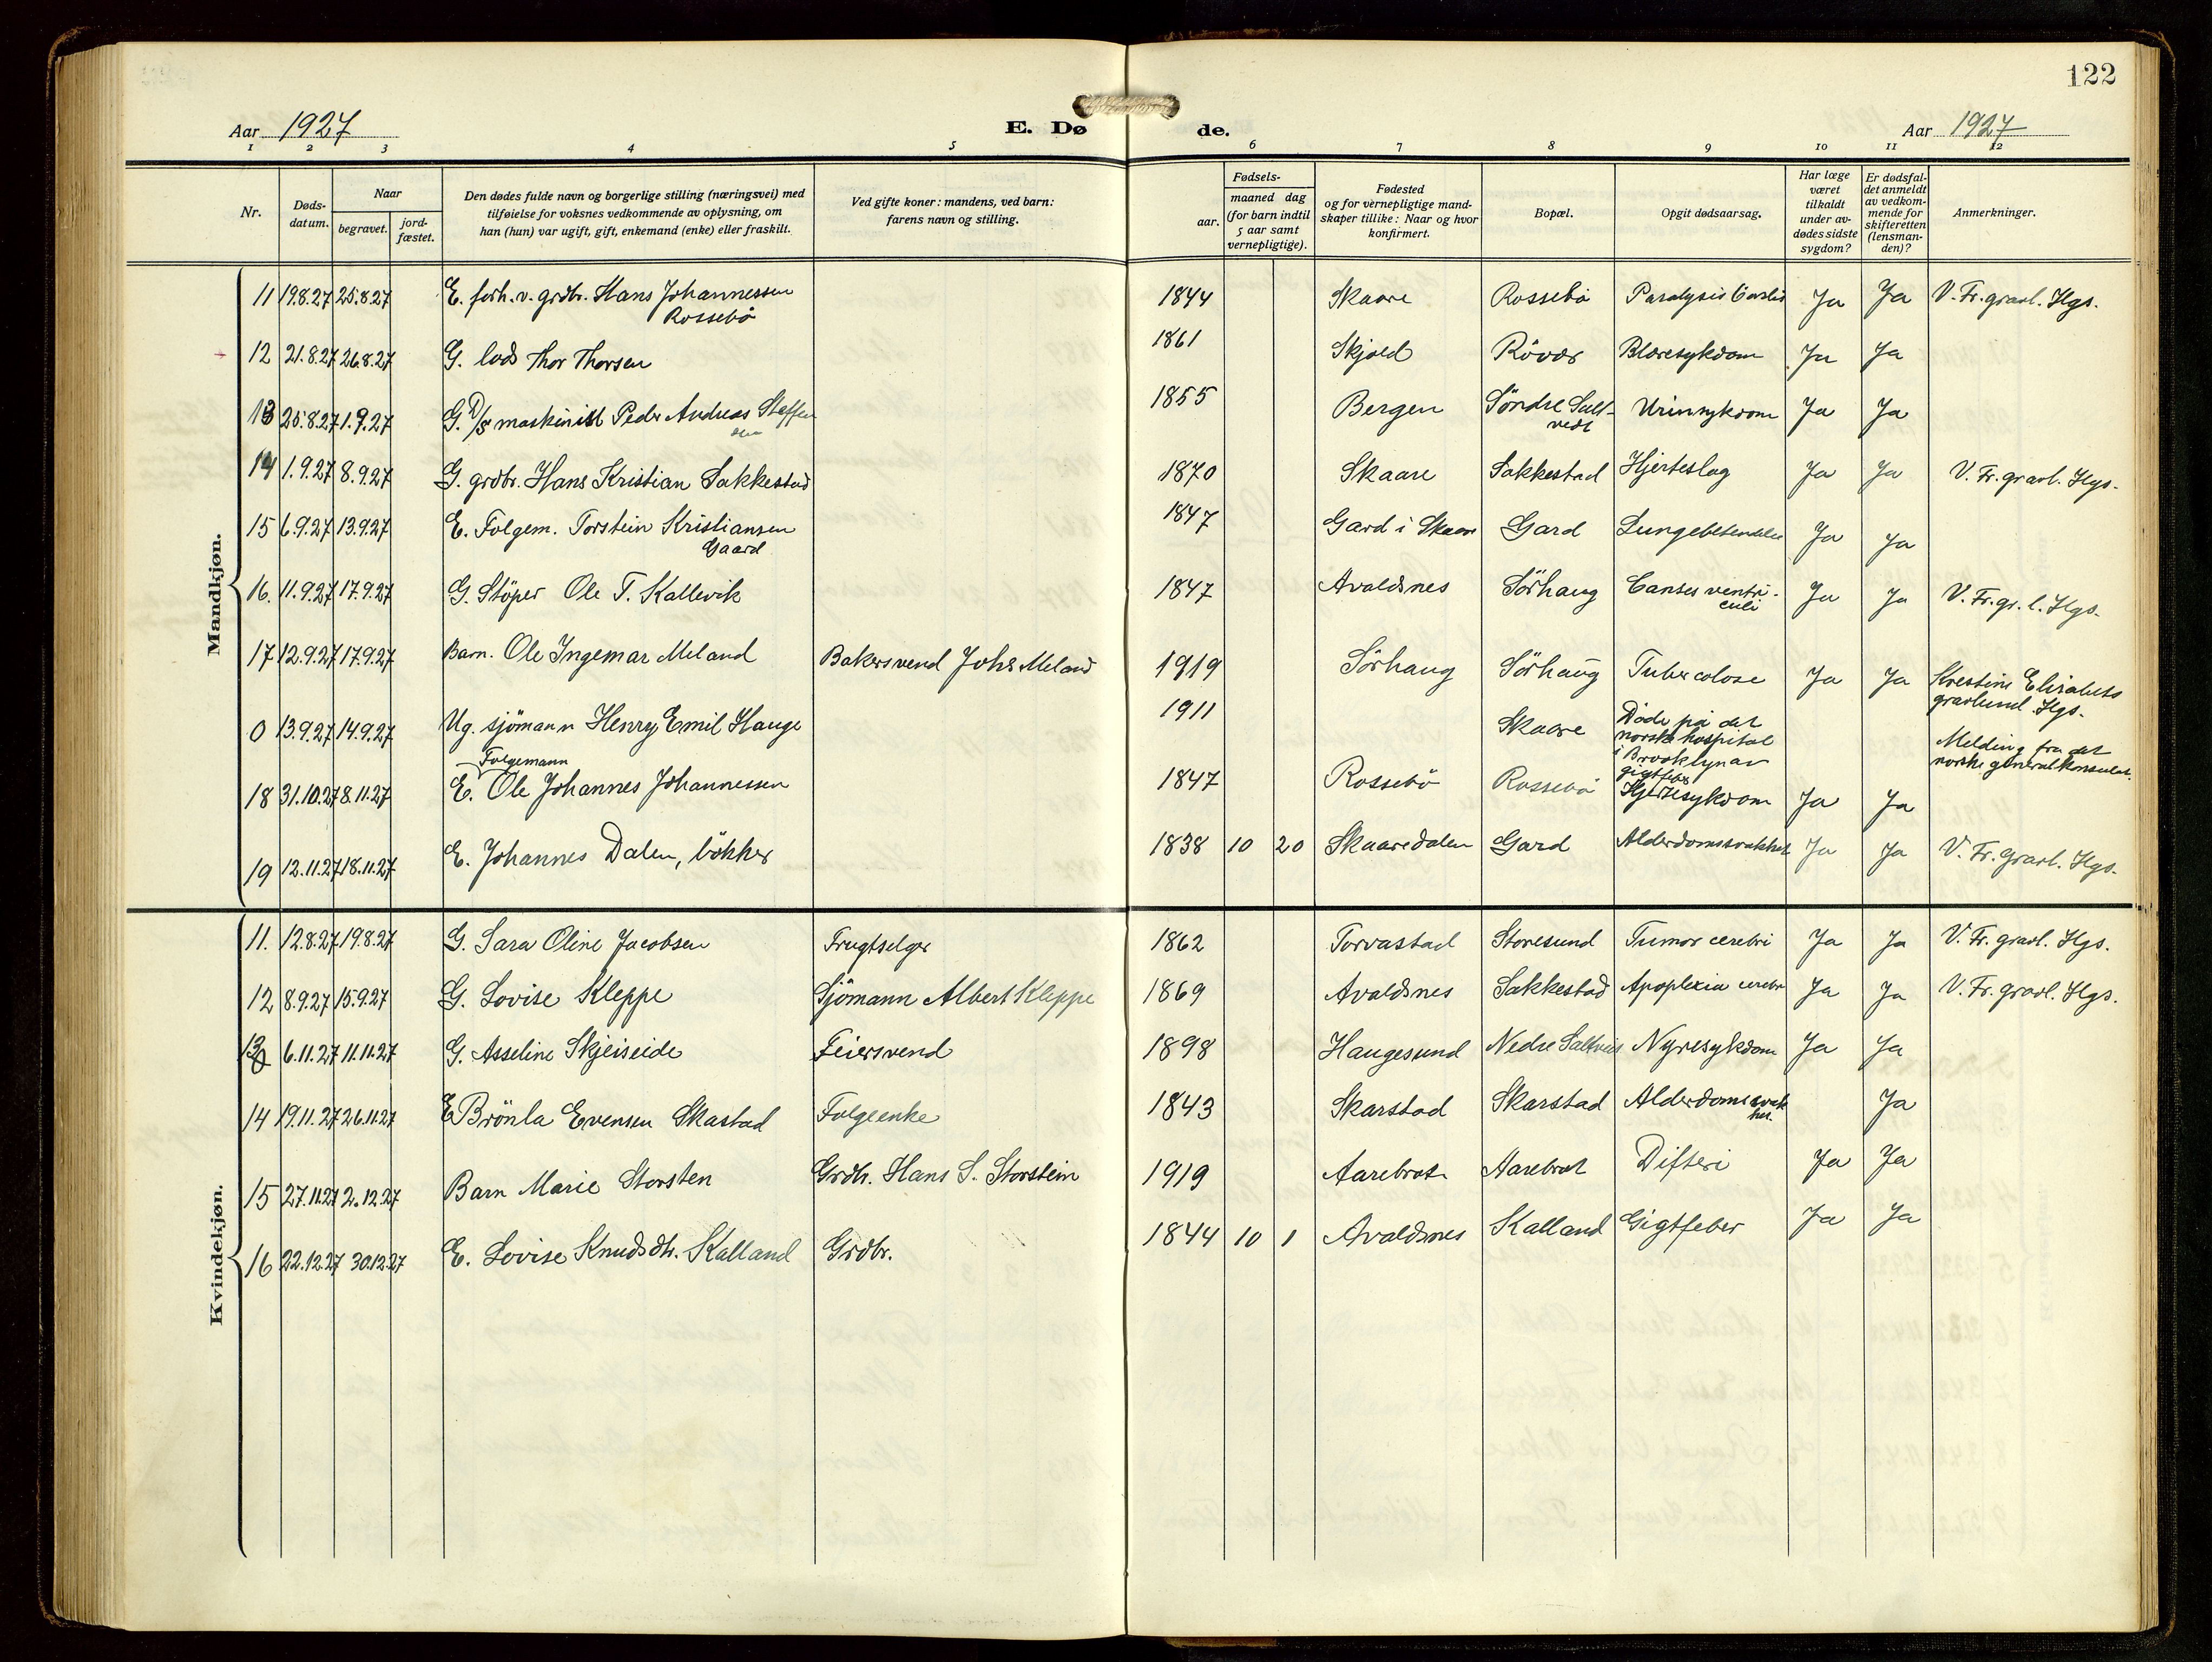 122
Aar 1927
E. Dø
de.
Aar 1927
1 2 3 4 5 6 7 8 9 10 11 12
Nr.
Døds-
datum.
Naar
begravet.
jord-
fæstet.
Den dødes fulde navn og borgerlige stilling (næringsvei) med
tilføielse for voksnes vedkommende av oplysning, om
han (hun) var ugift, gift, enkemand (enke) eller fraskilt.
Ved gifte koner: mandens, ved barn:
farens navn og stilling.
Fødsels-
aar.
maaned dag
(for barn indtil
5 aar samt
vernepligtige).
Fødested
og for vernepligtige mand-
skaper tillike: Naar og hvor
konfirmert.
Bopæl.
Opgit dødsaarsag.
Har læge
været
tilkaldt
under av-
dødes sidste
sygdom?
Er dødsfal-
det anmeldt
av vedkom-
mende for
skifteretten
(lensman-
den)?
Anmerkninger.
Mandkjøn.
11 19.8.27 25.8.27 E. forh. v. grdbr. Hans Johannessen 1844 Skaare Rossebö Paralysis Ja Ja V. Fr. gravl. Hgs.
Rossebö
12 21.8.27 26.8.27 G. lods Thor Thorsen 1861 Skjold Rövær Blæresykdom Ja Ja
13 25.8.27 1.9.27 G. D/S maskinist Peder Andreas Steffen 1855 Bergen Söndre Salt- Urinsykdom Ja Ja
sen vedt
14 1.9.27 8.9.27 G. grdbr. Hans Kristian Sakkestad 1870 Skaare Sakkestad Hjerteslag Ja Ja V. Fr. gravl. Hgs.
15 6.9.27 13.9.27 E. Folgem. Torstein Kristiansen 1847 Gard i Skaare Gard Lungebetendelse Ja Ja
Gaard
16. 11.9.27 17.9.27 G. Stöper Ole T. Kallevik 1847 Avaldsnes Sörhaug Canser ventri- Ja Ja V. Fr. gr. l. Hgs.
culi
17 12.9.27 17.9.27 Barn. Ole Ingemar Meland Bakersvend Johs Meland 1919 Sörhaug Sörhaug Tubercolose Ja Ja Krestine Elisabets
gravlund Hgs.
0 13.9.27 14.9.27 Ug. sjömann Henry Emil Hauge 1911 Skaare Döde på det
norske hospital
i Brooklyn av
gigtfeber
Melding fra det
norske generalkonsulat.
Folgemann
18 31.10.27 8.11.27 E. Ole Johannes Johannessen 1847 Rossebö Rossebö Hjertesykdom Ja Ja
19 12.11.27 18.11.27 E. Johannes Dalen, bökker 1838 10 20 Skaaredalen Gard Alderdomssvakhet Ja Ja V. Fr. gravl. Hgs.
Kvindekjøn.
11. 12.8.27 19.8.27 G. Sara Oline Jacobsen Frugtselger 1862 Torvastad Storesund Tumor cerebri Ja Ja V. Fr. gravl. Hgs.
12 8.9.27 15.9.27 G. Lovise Kleppe Sjömann Albert Kleppe 1869 Avaldsnes Sakkestad Apoplexia cerebri Ja Ja V. Fr. gravl. Hgs.
13 6.11.27 11.11.27 G. Asseline Skjeiseide Feiersvend 1898 Haugesund Nedre Saltveit Nyresykdom Ja Ja
14 19.11.27 26.11.27 E Brönla Evensen Skastad Folgeenke 1843 Skarstad Skarstad Alderdomssvak Ja
het.
15 27.11.27 2.12.27 Barn Marie Storsten Grdbr. Hans S. Storstein 1919 Aarebrot Aarebrot Difteri Ja Ja
16 22.12.27 30.12.27 E. Lovise Knudsdtr. Kalland Grdbr. 1844 10 1 Avaldsnes Kalland Gigtfeber Ja Ja